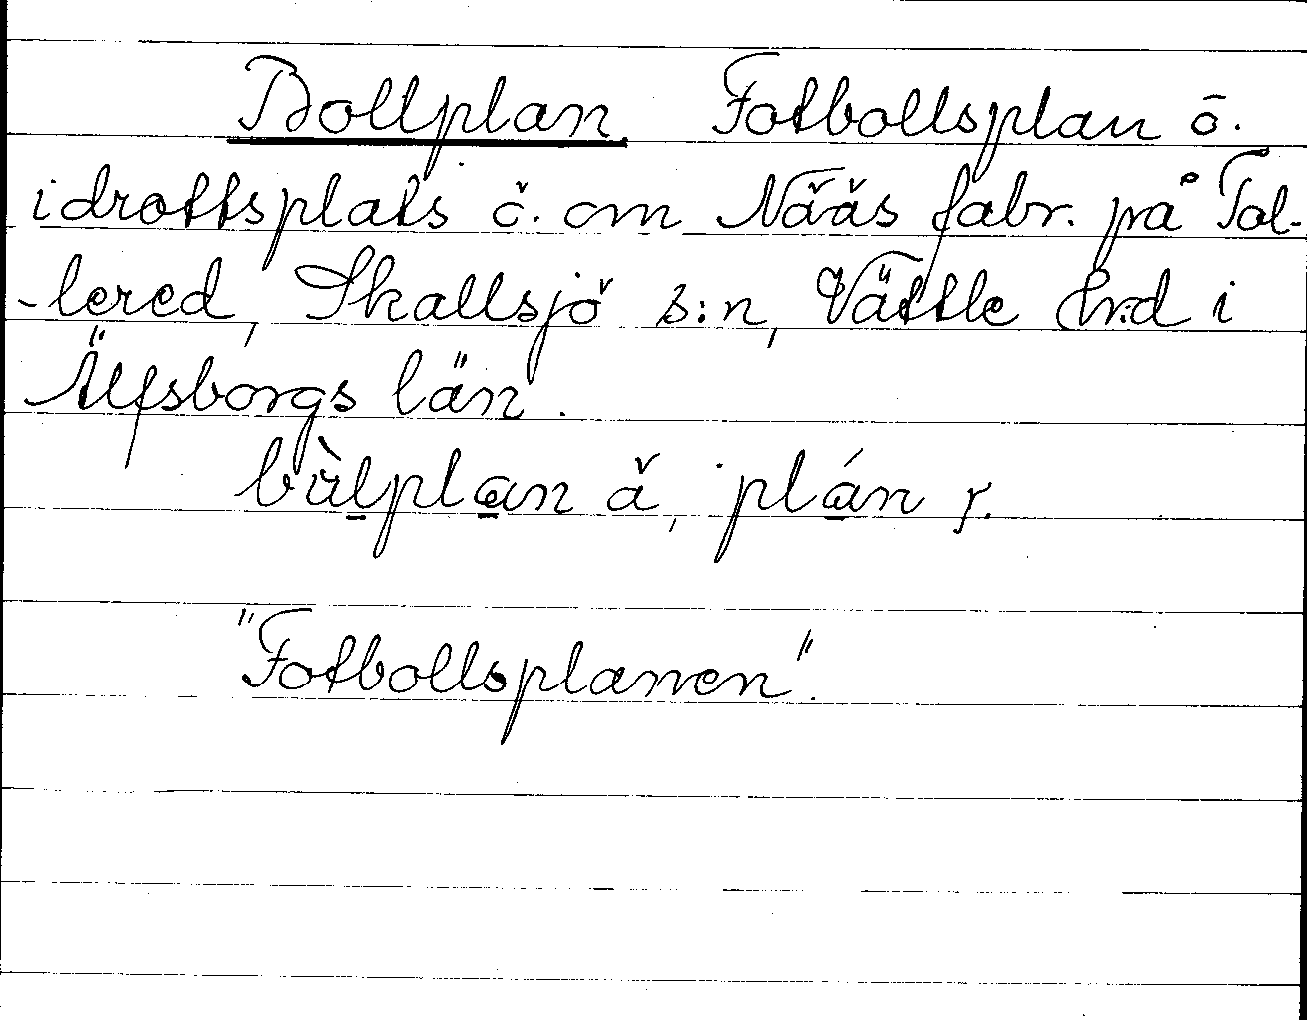 Bollplan Fotbollsplan o.
idrottsplats ö. om Nääs fabr. på Tol-
-lered, Skallsjö s:n, Vättle hrd i
Älfsborgs län.
bùlplan ä, plán r.
"Fotbollsplanen".